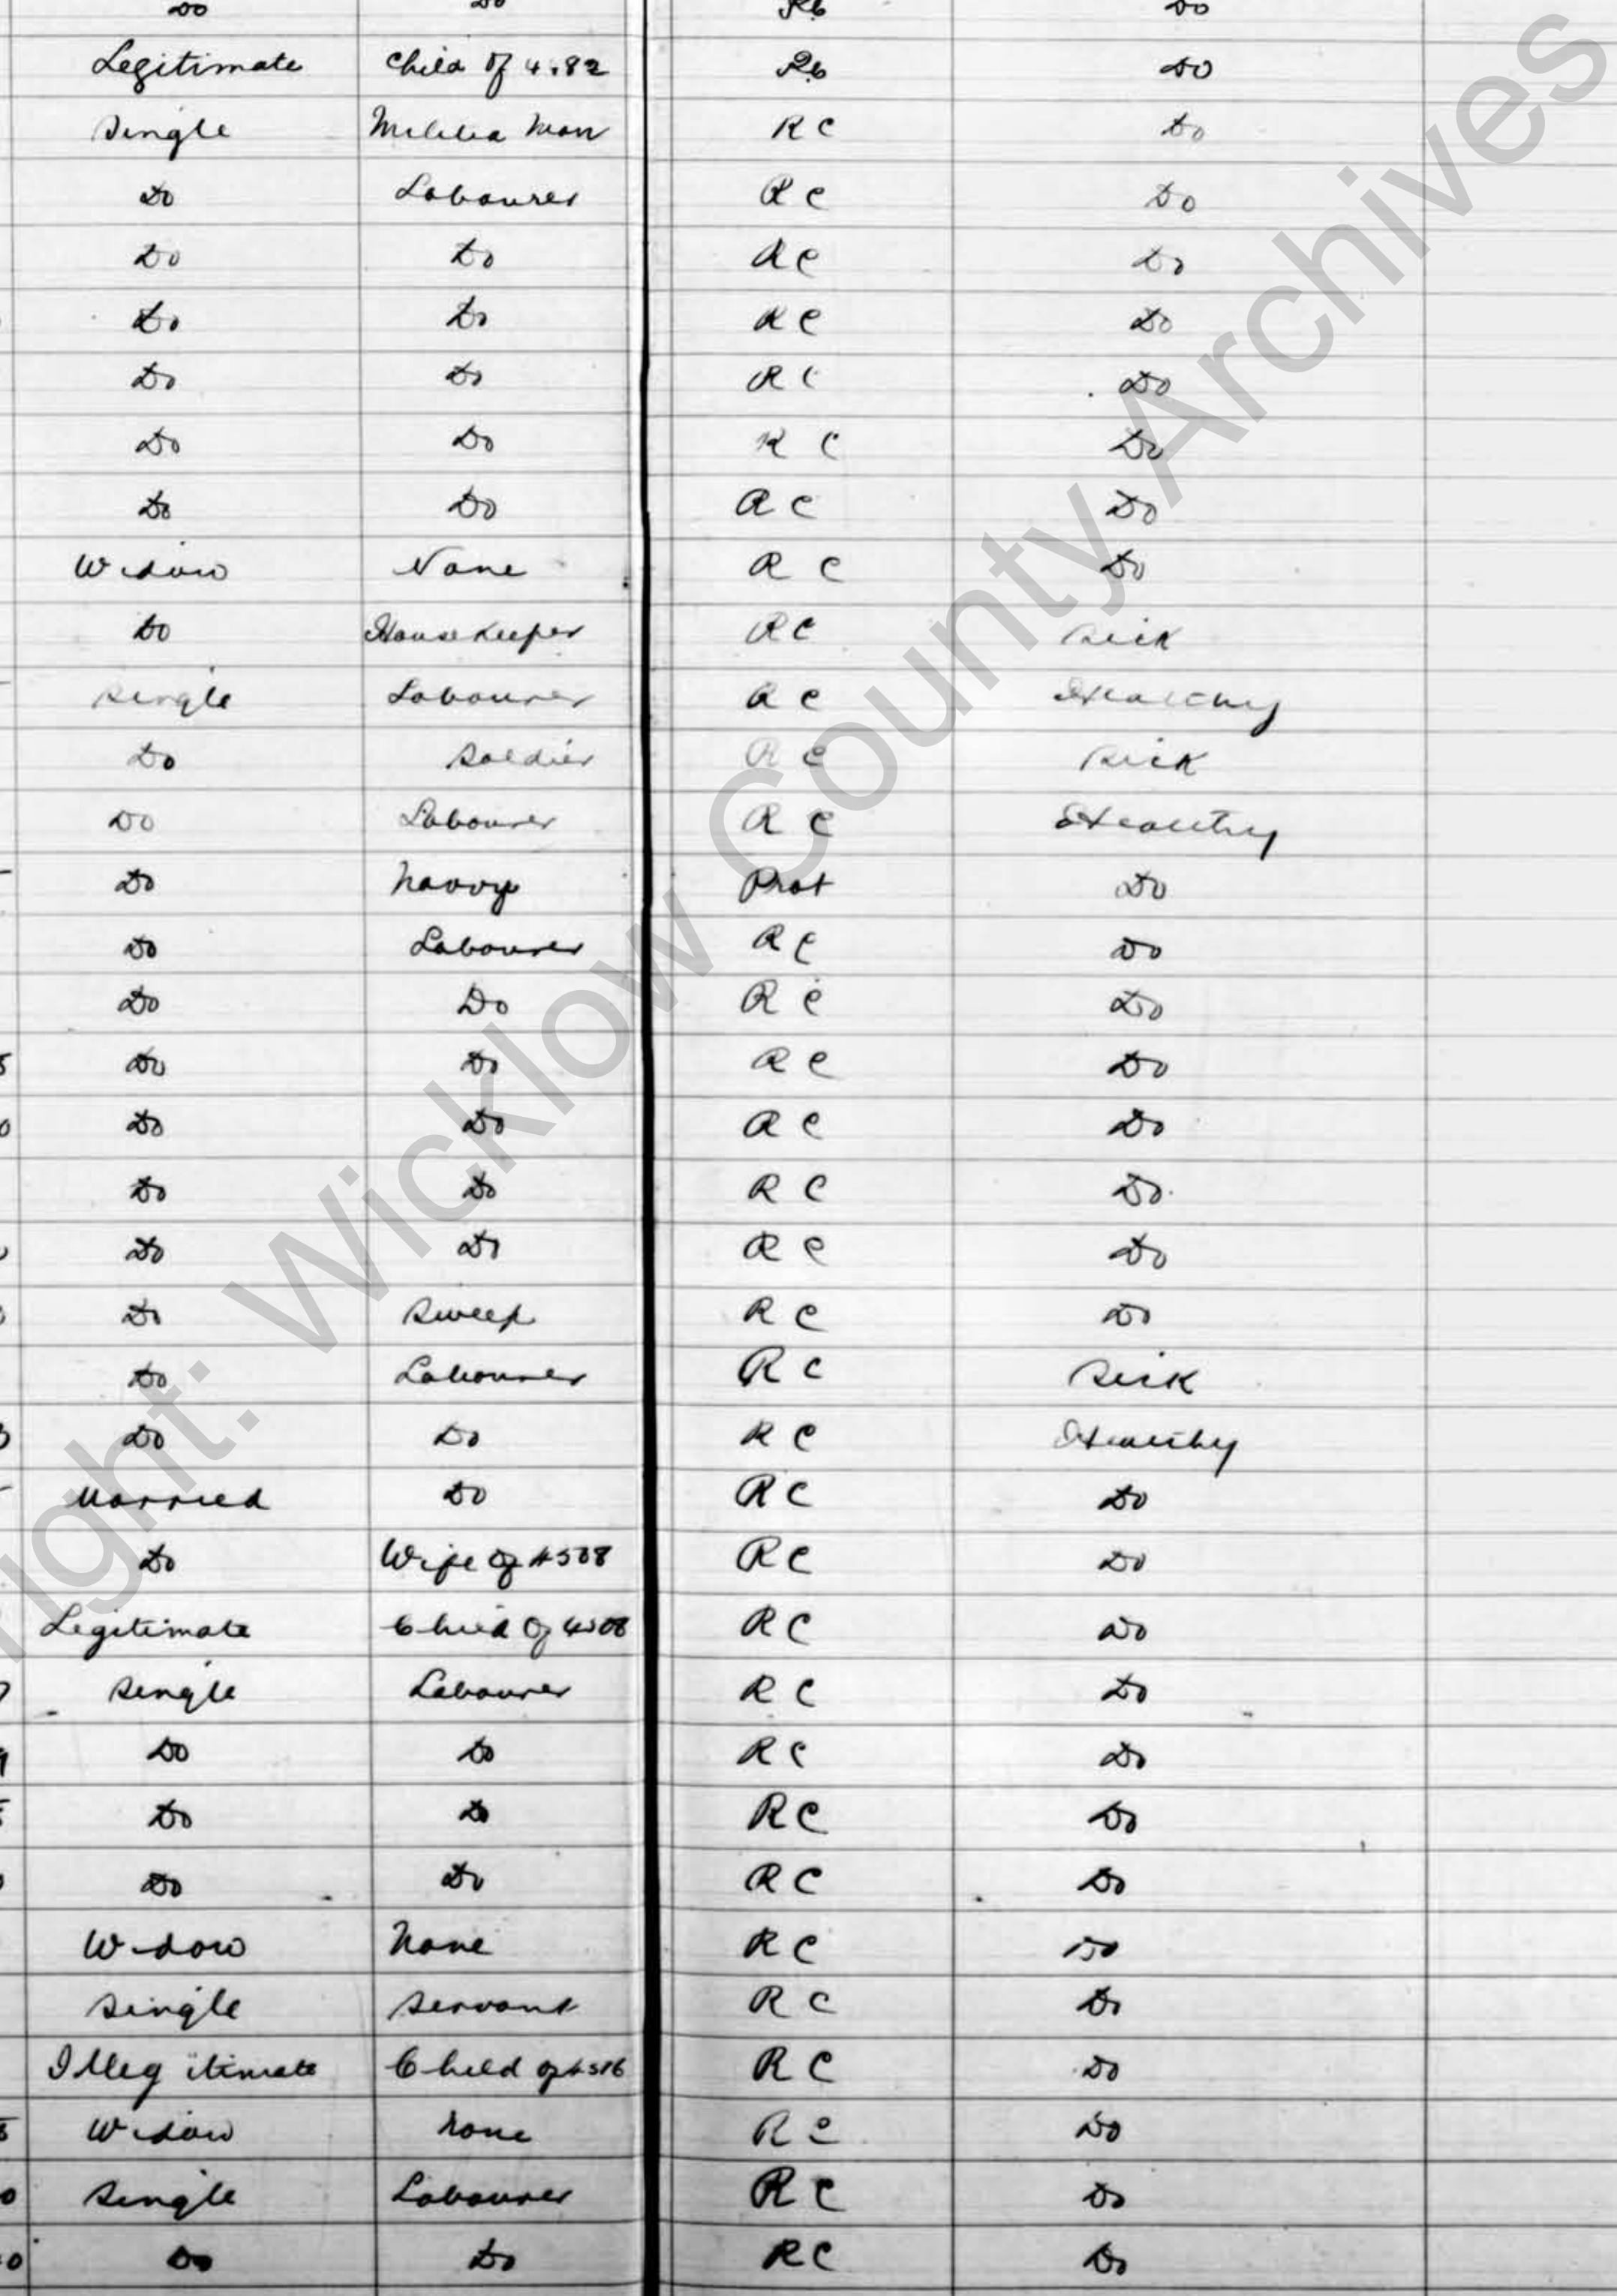 Do Do Rc Do
Legitimate Child of 4.82 Rc Do
Single Militia Man R C Do
Do Labourer R C Do
Do Do R C Do
Do Do R C Do
Do Do R C Do
Do Do R C Do
Do Do R C Do
Widow None R C Do
Do House Keeper R C Sick
Single Labourer R C Healthy
Do Soldier R C Sick
Do Labourer R C Healthy
Do Navvy Prot Do
Do Labourer R C Do
Do Do R C Do
Do Do R C Do
Do Do R C Do
Do Do R C Do
Do Do R C Do
Do Sweep R C Do
Do Labourer R C Sick
Do Do R C Healthy
Married Do R C Do
Do Wife of 4508 R C Do
Legitimate Child of 4508 R C Do
Single Labourer R C Do
Do Do R C Do
Do Do R C Do
Do Do R C Do
Widow None R C Do
Single Servant R C Do
Illegitimate Child of 4516 R C Do
Widow None R C Do
Single Labourer R C Do
Do Do R C Do
ight: Wicklow County Archives